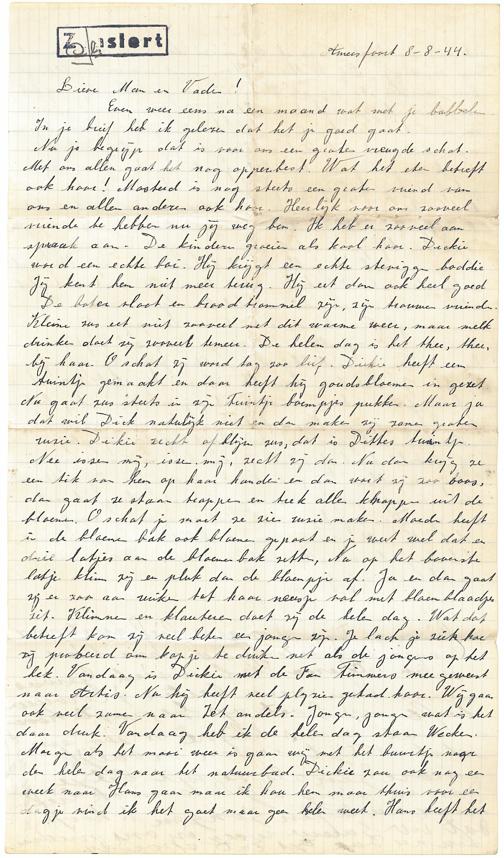 Amersfoort 8-8-44.
Lieve Man en Vader!
Even weer eens na een maand wat met je babbelen
In je brief heb ik gelezen dat het je goed gaat.
Nu je begrijp dat is voor ons een groten vreugde schat.
Met ons allen gaat het nog opperbest. Wat het eten betreft
ook hoor! Mosterd is nog steets een groten vriend van
ons en allen anderen ook hoor. Heerlijk voor ons zooveel
vriende te hebben nu jij weg ben. Ik heb er zooveel aan
spraak aan. De kindern groeien als kool hoor. Dickie
word een echte boi. Hij krijgt een echte stevigge boddie
Jij kent hem niet meer terug. Hij eet dan ook heel goed
De boter vloot en brood trommel zijn, zijn trouwen vrinden.
Kleine zus eet niet zooveel met dit warme weer, maar melk
drinken doet zij zooveel temeer. De helen dag is het thee, thee,
bij haar. O schat zij word tog zoo lief. Dickie heeft een
tuintje gemaakt en daar heeft hij goudsbloemen in gezet
Nu gaat zus steets in zijn tuintje bloempjes pukken. Maar ja
dat wil Dick natulijk niet en dan maken zij zamen groten
ruzie. Dickie zecht afblijen zus, dat is Dittes tuintje.
Nee issen mij, issen mij, zecht zij dan. Nu dan krijg ze
een tik van hem op haar handen en dan wort zij zoo boos,
dan gaat ze staan trappen en trek allen knoppen uit de
bloemen. O schat je moet ze zien ruzie maken. Moeder heeft
in de bloemen bak ook bloemen gepoot en je weet wel dat er
drie latjes aan de bloemenbak zitten, Nu op het bovenste
latje klim zij en pluk dan de bloempje af. Ja en dan gaat
zij er zoo aan ruiken tot haar neusje vol met bloemblaadjes
zit. Klimmen en klauteren doet zij de helen dag. Wat dat
betreft kon zij veel beter een jongen zijn. Je lach je ziek hoor
zij probeerd om kopje te duiken net als de jongens op het
hek. Vandaag is Dickie met de Fam Timmers mee geweest
naar Artis. Nu hij heeft veel plezier gehad hoor. Wij gaan
ook veel zamen naar
daar druk. Vandaag heb ik de helen dag staan Wecken.
Morgen als het mooi weer is gaan wij met het buurtje naar
den helen dag naar het natuurbad. Dickie zou ook nog een
week naar Hans gaan maar ik hou hem maar thuis voor een
dagje vind ik het goet maar geen helen week. Hans heeft het